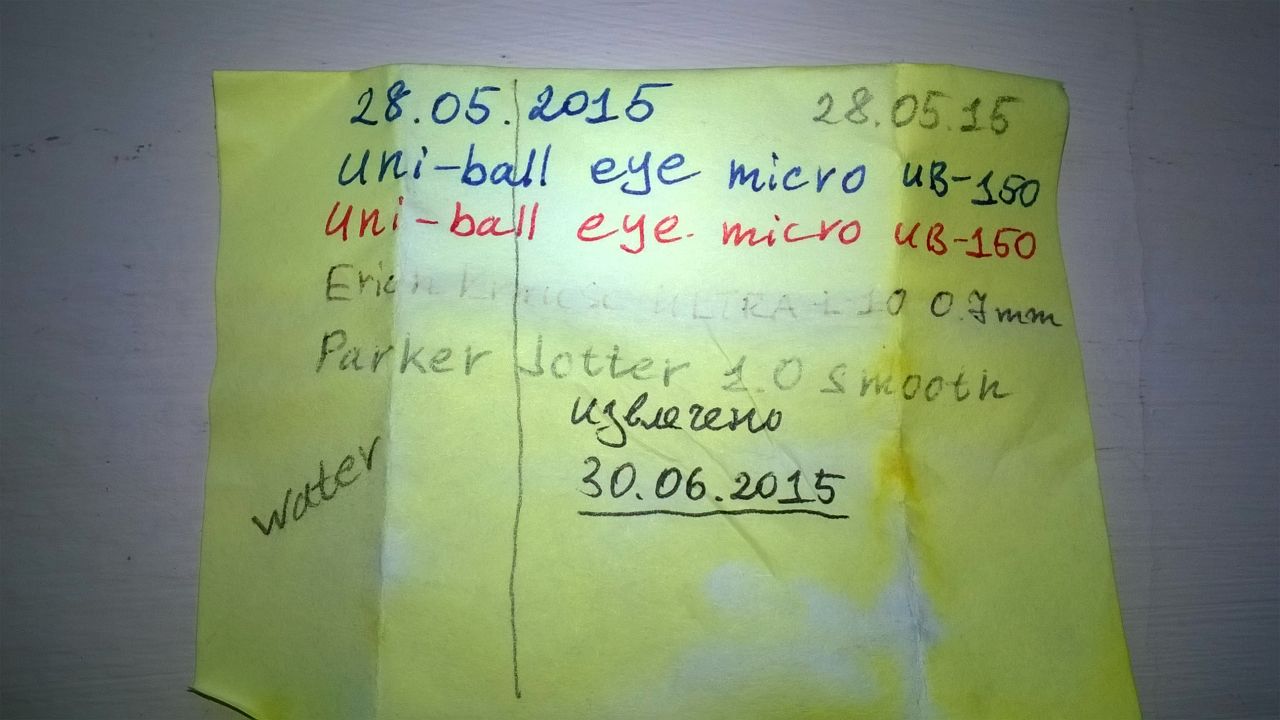 28.05.2015 28.05.15
uni-ball eye micro UB-150
uni-ball eye micro UB-150
Erich Krause ULTRA-L 10 0.7mm
Parker Jotter 1.0 Smooth
извлечено
30.06.2015
water